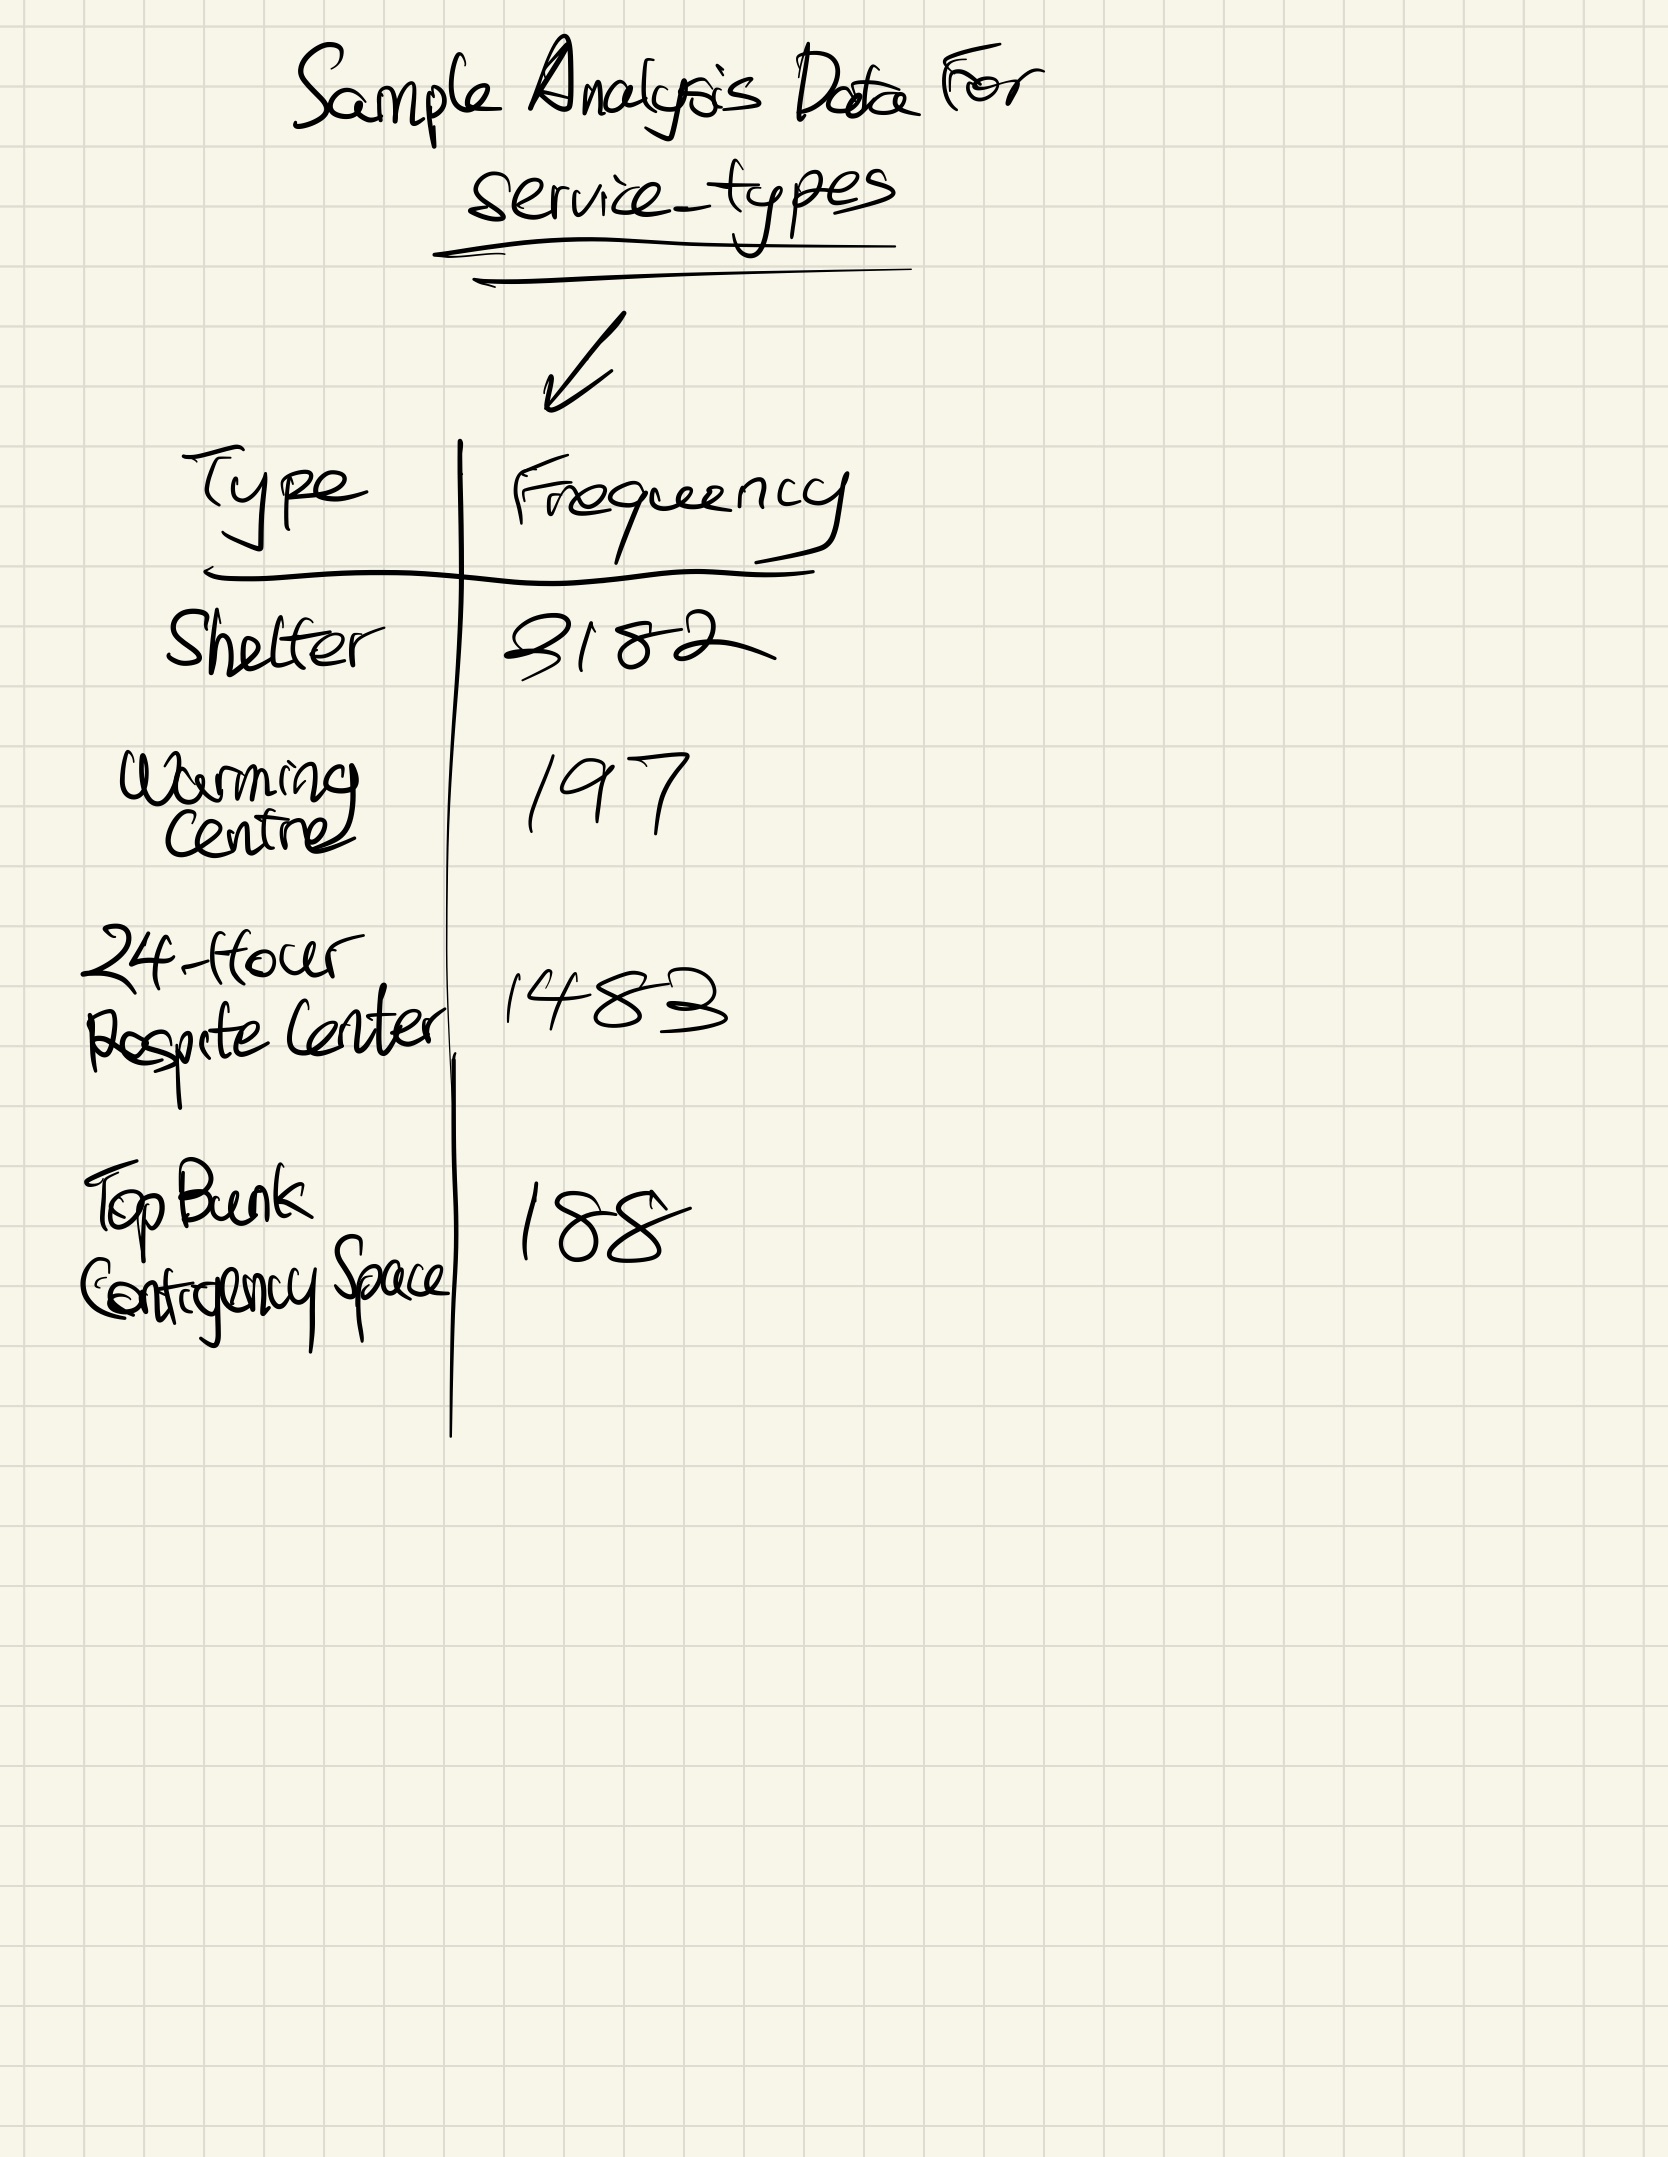 Sample Analysis Data For
service_types
Type Frequency
Shelter 3182
Warming
Centre 197
24-Hour
Respite Center 1483
Top Bunk
Contigency Space 188